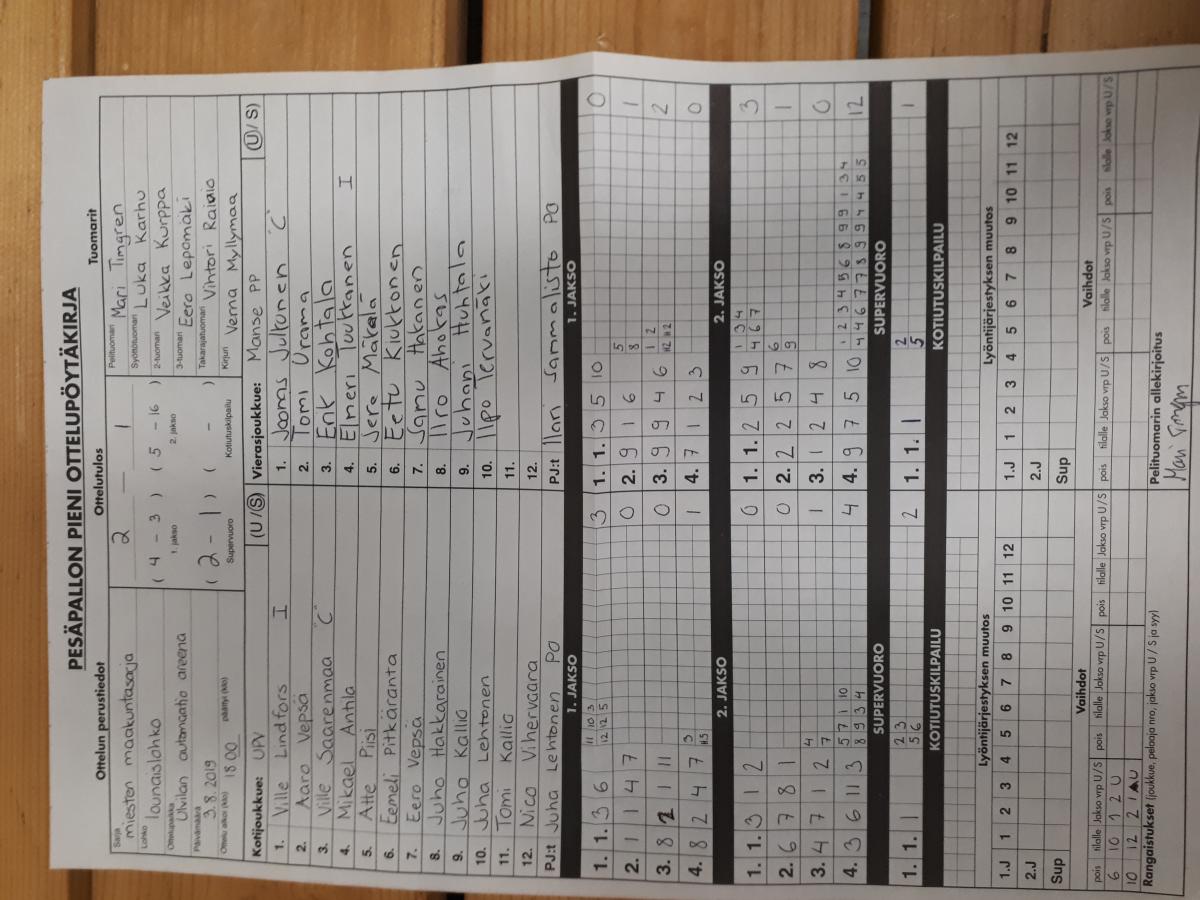 PESÄPALLON PIENI OTTELUPÖYTÄKIRJA
Ottelun perustiedot
Sarja
miesten maakuntasarja
Lohko
lounaislohko
Ottelupaikka
Ulvilan automaatio areena
Päivämäärä
3.8.2019
Ottelu alkoi (klo) 18 00 päättyi (klo)
Ottelutulos
2 — 1
( 4 - 3 ) ( 5 - 16 )
1. jakso 2. jakso
( 2 - 1 ) ( - )
Supervuoro Kotiutuskilpailu
Tuomarit
Pelituomari Mari Timgren
Syöttötuomari Luka Karhu
2-tuomari Veikka Kurppa
3-tuomari Eero Lepomäki
Takarajatuomari Vihtori
Kirjuri Verna Myllymaa
Kotijoukkue: UPV (U / S)
1. Ville Lindfors I
2. Aaro Vepsä
3. Ville Saarenmaa "C"
4. Mikael Antila
5. Atte Piisi
6. Eemeli Pitkäranta
7. Eero Vepsä
8. Juho Hakkarainen
9. Juho Kallio
10. Juha Lehtonen
11. Tomi Kallio
12. Nico Vihervaara
PJ:t Juha Lehtonen PO
1. JAKSO
1. 1. 3 6 11 10 3 3
12 12 5
2. 1 1 4 7 0
3. 8 2 1 11 0
4. 8 2 4 7 3 1
2. JAKSO
1. 1. 3 1 2 0
2. 6 7 8 1 0
3. 4 7 1 2 4 1
7
4. 3 6 11 3 5 7 1 10 4
8 9 3 4
SUPERVUORO
1. 1. 1 2 3 2
5 6
KOTIUTUSKILPAILU
Lyöntijärjestyksen muutos
1.J 1 2 3 4 5 6 7 8 9 10 11 12
2.J
Sup
Vaihdot
pois tilalle Jakso vrp U/S pois tilalle Jakso vrp U/S pois tilalle Jakso vrp U/S
6 10 1 2 U
10 12 2 1 U
Rangaistukset (joukkue, pelaaja nro, jakso vrp U / S ja syy)
Vierasjoukkue: Manse PP (U / S)
1. Joonas Jultunen "C"
2. Tomi Uroma
3. Erik Kohtala
4. Elmeri Tuukkanen I
5. Jere Mäkelä
6. Eetu Kiukkonen
7. Samu Hakanen
8. Iiro Ahokas
9. Juhani Huhtala
10. Ilpo Tervamäki
11.
12.
PJ:t Ilari Sammalisto PO
1. JAKSO
1. 1. 3 5 10 0
2. 9 1 6 5 1
8
3. 9 9 4 6 1 2 2
4. 7 1 2 3 0
2. JAKSO
1. 1. 2 5 9 1 3 4 3
4 6 7
2. 2 2 5 7 6 1
9
3. 1 2 4 8 0
4. 9 7 5 10 1 2 3 4 5 6 8 9 9 1 3 4 12
4 4 6 7 7 8 9 9 4 4 5 5
SUPERVUORO
1. 1. 1 2 1
5
KOTIUTUSKILPAILU
Lyöntijärjestyksen muutos
1.J 1 2 3 4 5 6 7 8 9 10 11 12
2.J
Sup
Vaihdot
pois tilalle Jakso vrp U/S pois tilalle Jakso vrp U/S pois tilalle Jakso vrp U/S
Pelituomarin allekirjoitus
Mari Timgren